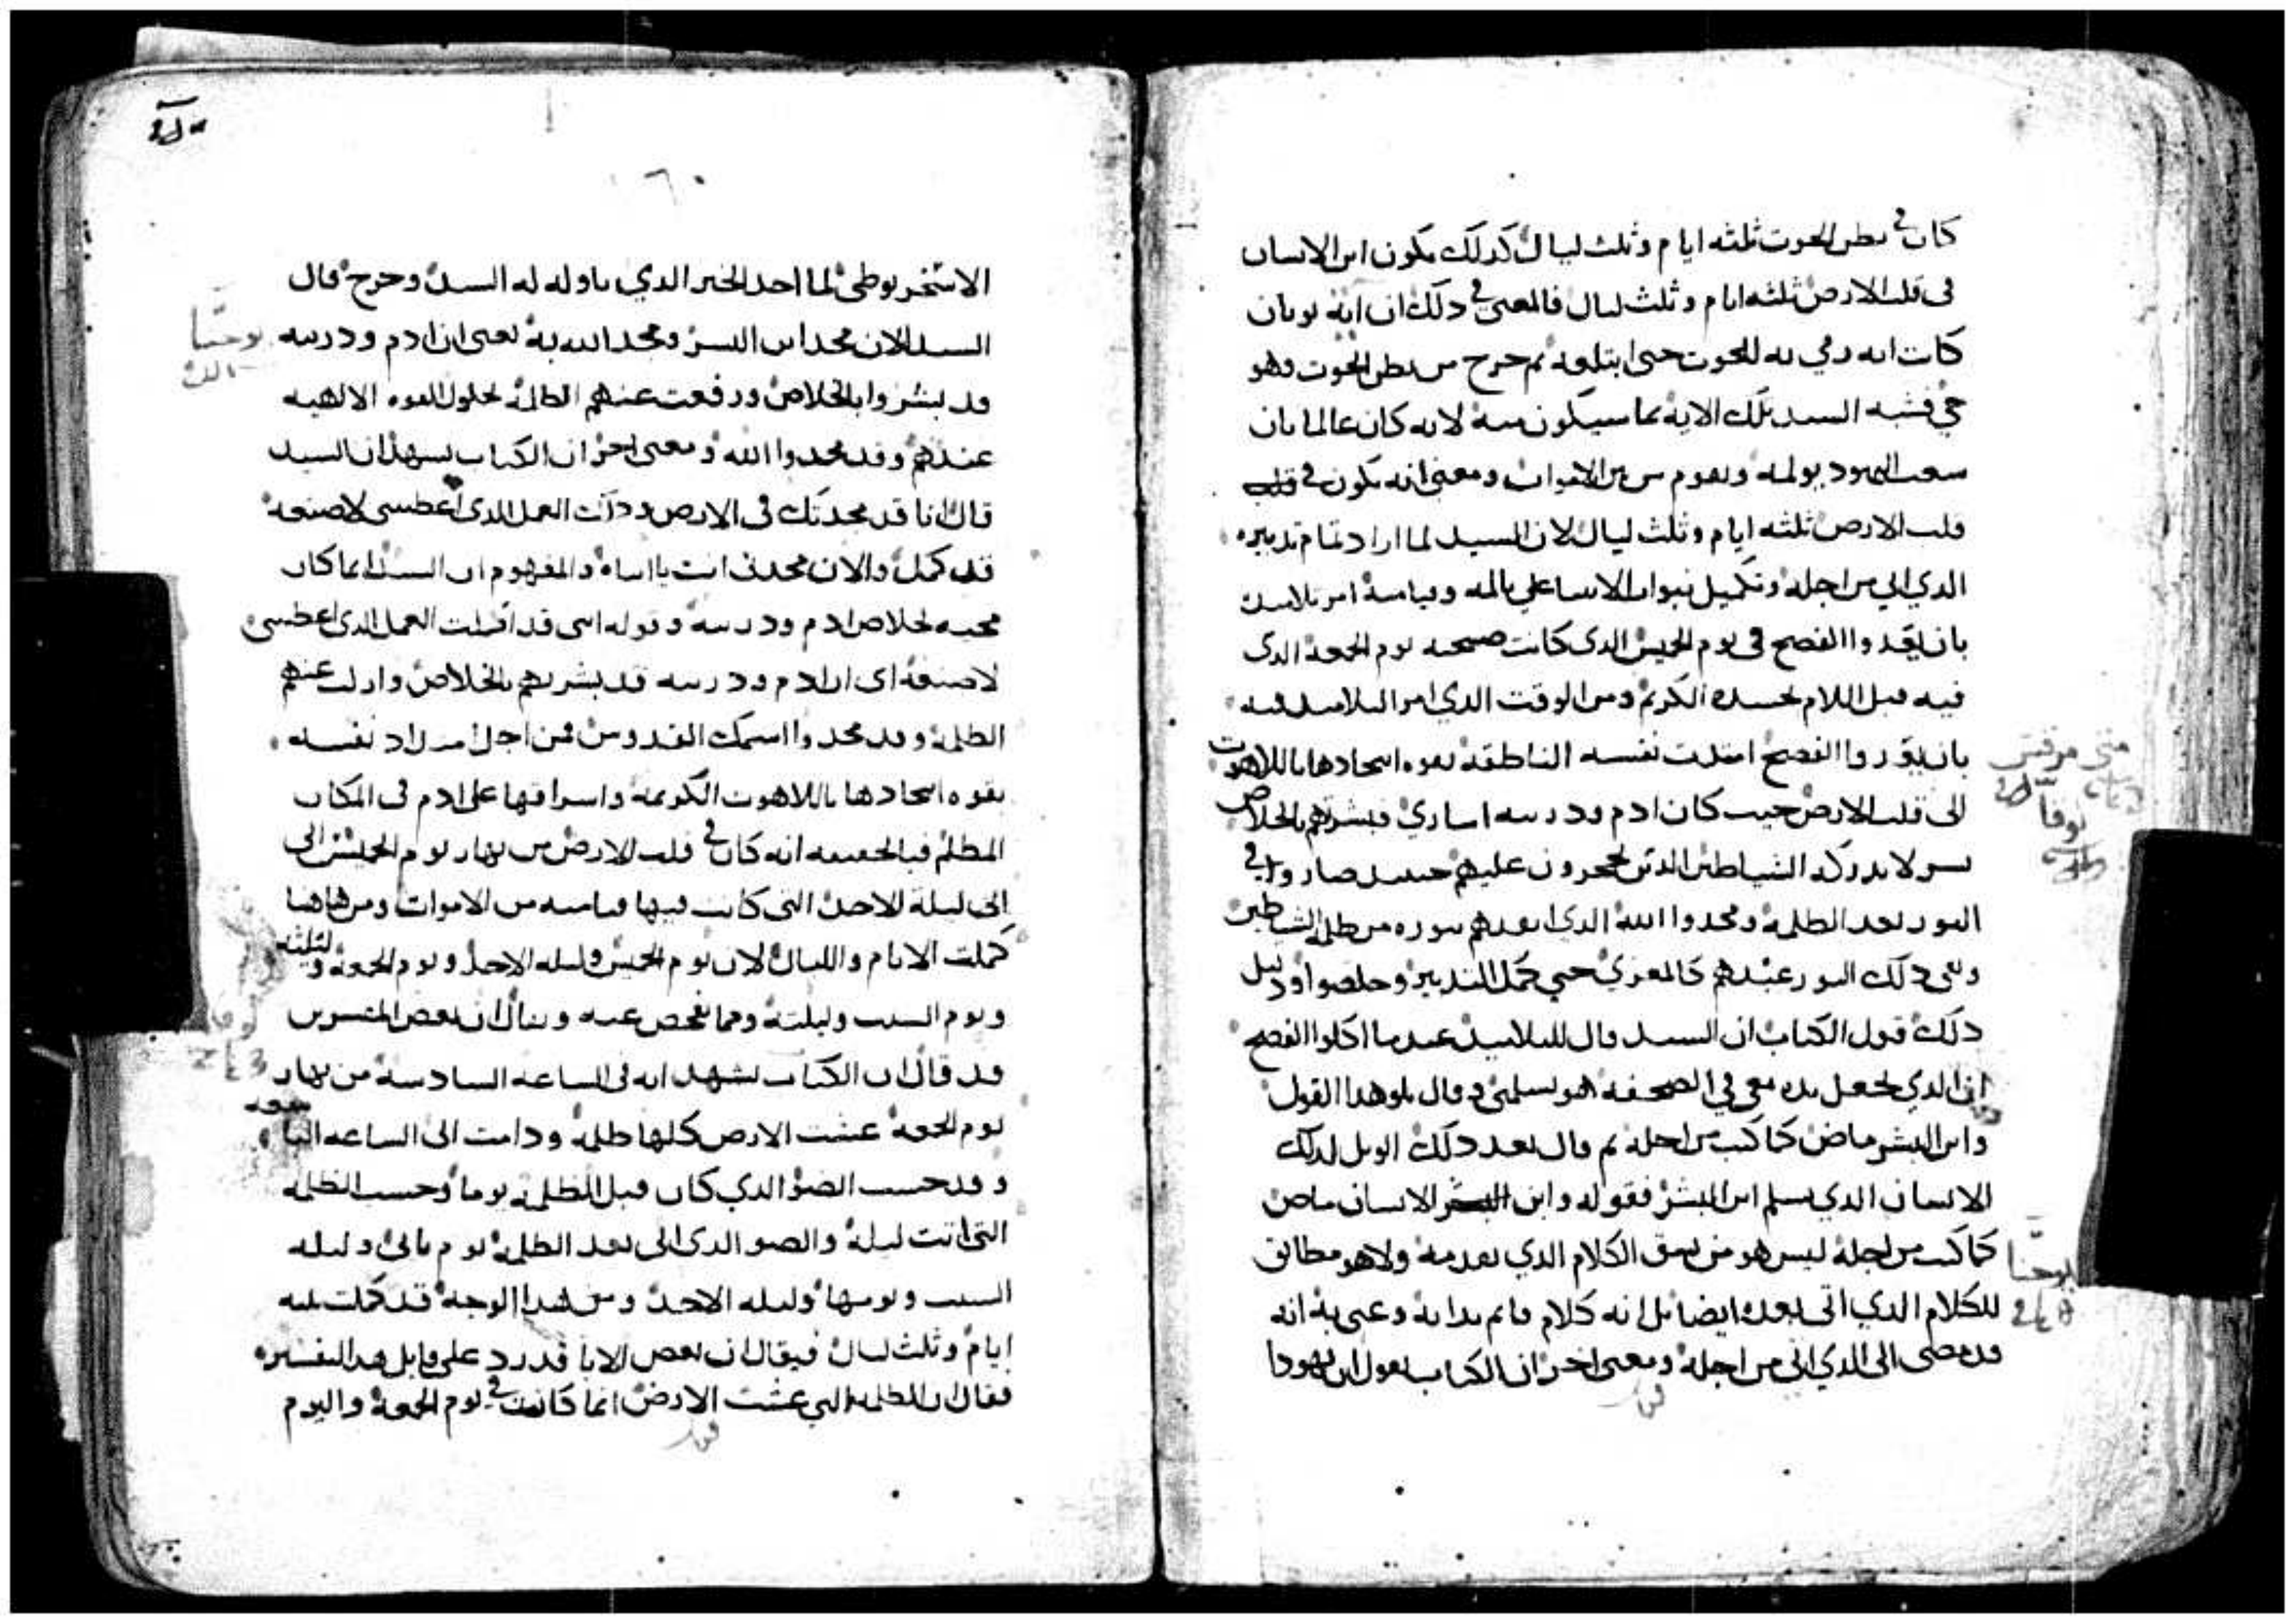 كان في بطن الحوت ثلثه ايام وثلث ليال كدلك يكون ابن الانسان
في قلب الارض ثلثه ايام وثلث ليال فالمعنى في دلك ان ايه يونان
كانت انه رمي به للحوت حتى ابتلعه ثم خرج من بطن الحوت وهو
حي فشبه السيد تلك الايه بما سيكون منه لانه كان عالما بان
اليهود يولمه ويقوم من بين الاموات ومعنى انه يكون في قلب
قلب الارض ثلثه ايام وثلث ليال لان السيد لما اراد تمام تدبيره
الدي اتي من اجله وتكميل نبوات الانبيا على المه وقيامته امر تلاميده
بان يعدوا الفصح في يوم الخميس الدى كانت صبيحته يوم الجمعه الدى
فيه قبل الالام بجسده الكريم ومن الوقت الدي امر التلاميد فيه
بان الفصح نفسه الناطقه بقوه اتحادها باللاهوت
الى قلب الارض حيت كان ادم ودريته اساري فبشرتهم بالخلاص
بسر لا يدركه الشياطين الدين عليهم حينيد صاروا في
النور بعد الظلمه ومجدوا الله الدي بنوره من ظلمه الشياطين
وبقى دلك النور عندهم كالمعزي حتي كمل التدبير وخلصوا ودليل
دلك قول الكتاب ان السيد قال للتلاميد عندما اكلوا الفصح
ان الدي يجعل يده معي في الصحفه هو يسلمني وقال يتلو هدا القول
وابن البشر ماض كما كتب من اجله ثم قال بعد دلك الويل لدلك
الانسان الدي يسلم ابن البشر فقوله وابن البشر الانسان ماض
كما كتب من اجله ليس هو من نسق الكلام الدي تقدمه ولا هو مطابق
للكلام الدي اتى بعده ايضا بل انه كلام قايم بداته وعنى به انه
قد مضى الى الدي اتى من اجله ومعنى اخر ان الكتاب يقول ان يهودا
متى مرقس
لوقا
يوحنا
الاسخريوطى لما اخد الخبز الدي ناوله له السيد وخرج قال
السيد الان مجد ابن البشر ومجد الله به يعنى ان ادم ودريته
قد بشروا بالخلاص ورفعت عنهم الظلمه بحلول القوه الالهيه
عندهم وقد مجدوا الله ومعنى اخر ان الكتاب يشهد ان السيد
قال انا قد مجدتك في الارض ودلك العمل الدى اعطيتنى لاصنعه
قد كمل والان مجدني انت يا ابتاه والمفهوم ان السيد انما كان
مجيه لخلاص ادم ودريته وقوله انى قد اكملت العمل الدى اعطيتنى
لاصنعه اى ان ادم ودريته قد بشرتهم بالخلاص وازلت عنهم
الظلمه وقد مجدوا اسمك القدوس فمن اجل نفسه
بقوه اتحادها باللاهوت الكريمه واشراقها على ادم في المكان
المظلم فبالحقيقه انه كان في قلب الارض من نهار يوم الخميس الى
الى ليله الاحد التى كانت فيها قيامته من الاموات ومن هاهنا
كملت الايام والليال لان يوم الخميس وليله الاحد ويوم الجمعه وليلته
ويوم السبت وليلته ومما يفحص عنه ويقال ان بعض المفسرين
قد قال ان الكتاب يشهد انه في الساعه السادسه من نهار
يوم الجمعه غشت الارض كلها ظلمه ودامت الى الساعه التاسعه
وقد حسب الضو الدي كان قبل الظلمه يوما وحسب الظلمه
التى اتت ليله والضو الدى اتى بعد الظلمه يوم تانى وليله
السبت ويومها وليله الاحد ومن هدا الوجه قد كملت تلته
ايام وثلث ليال فيقال ان بعض الابا قد رد على قايل هدا التفسير
فقال ان الظلمه التي غشت الارض انما كانت في يوم الجمعه واليوم
يوحنا
لوقا